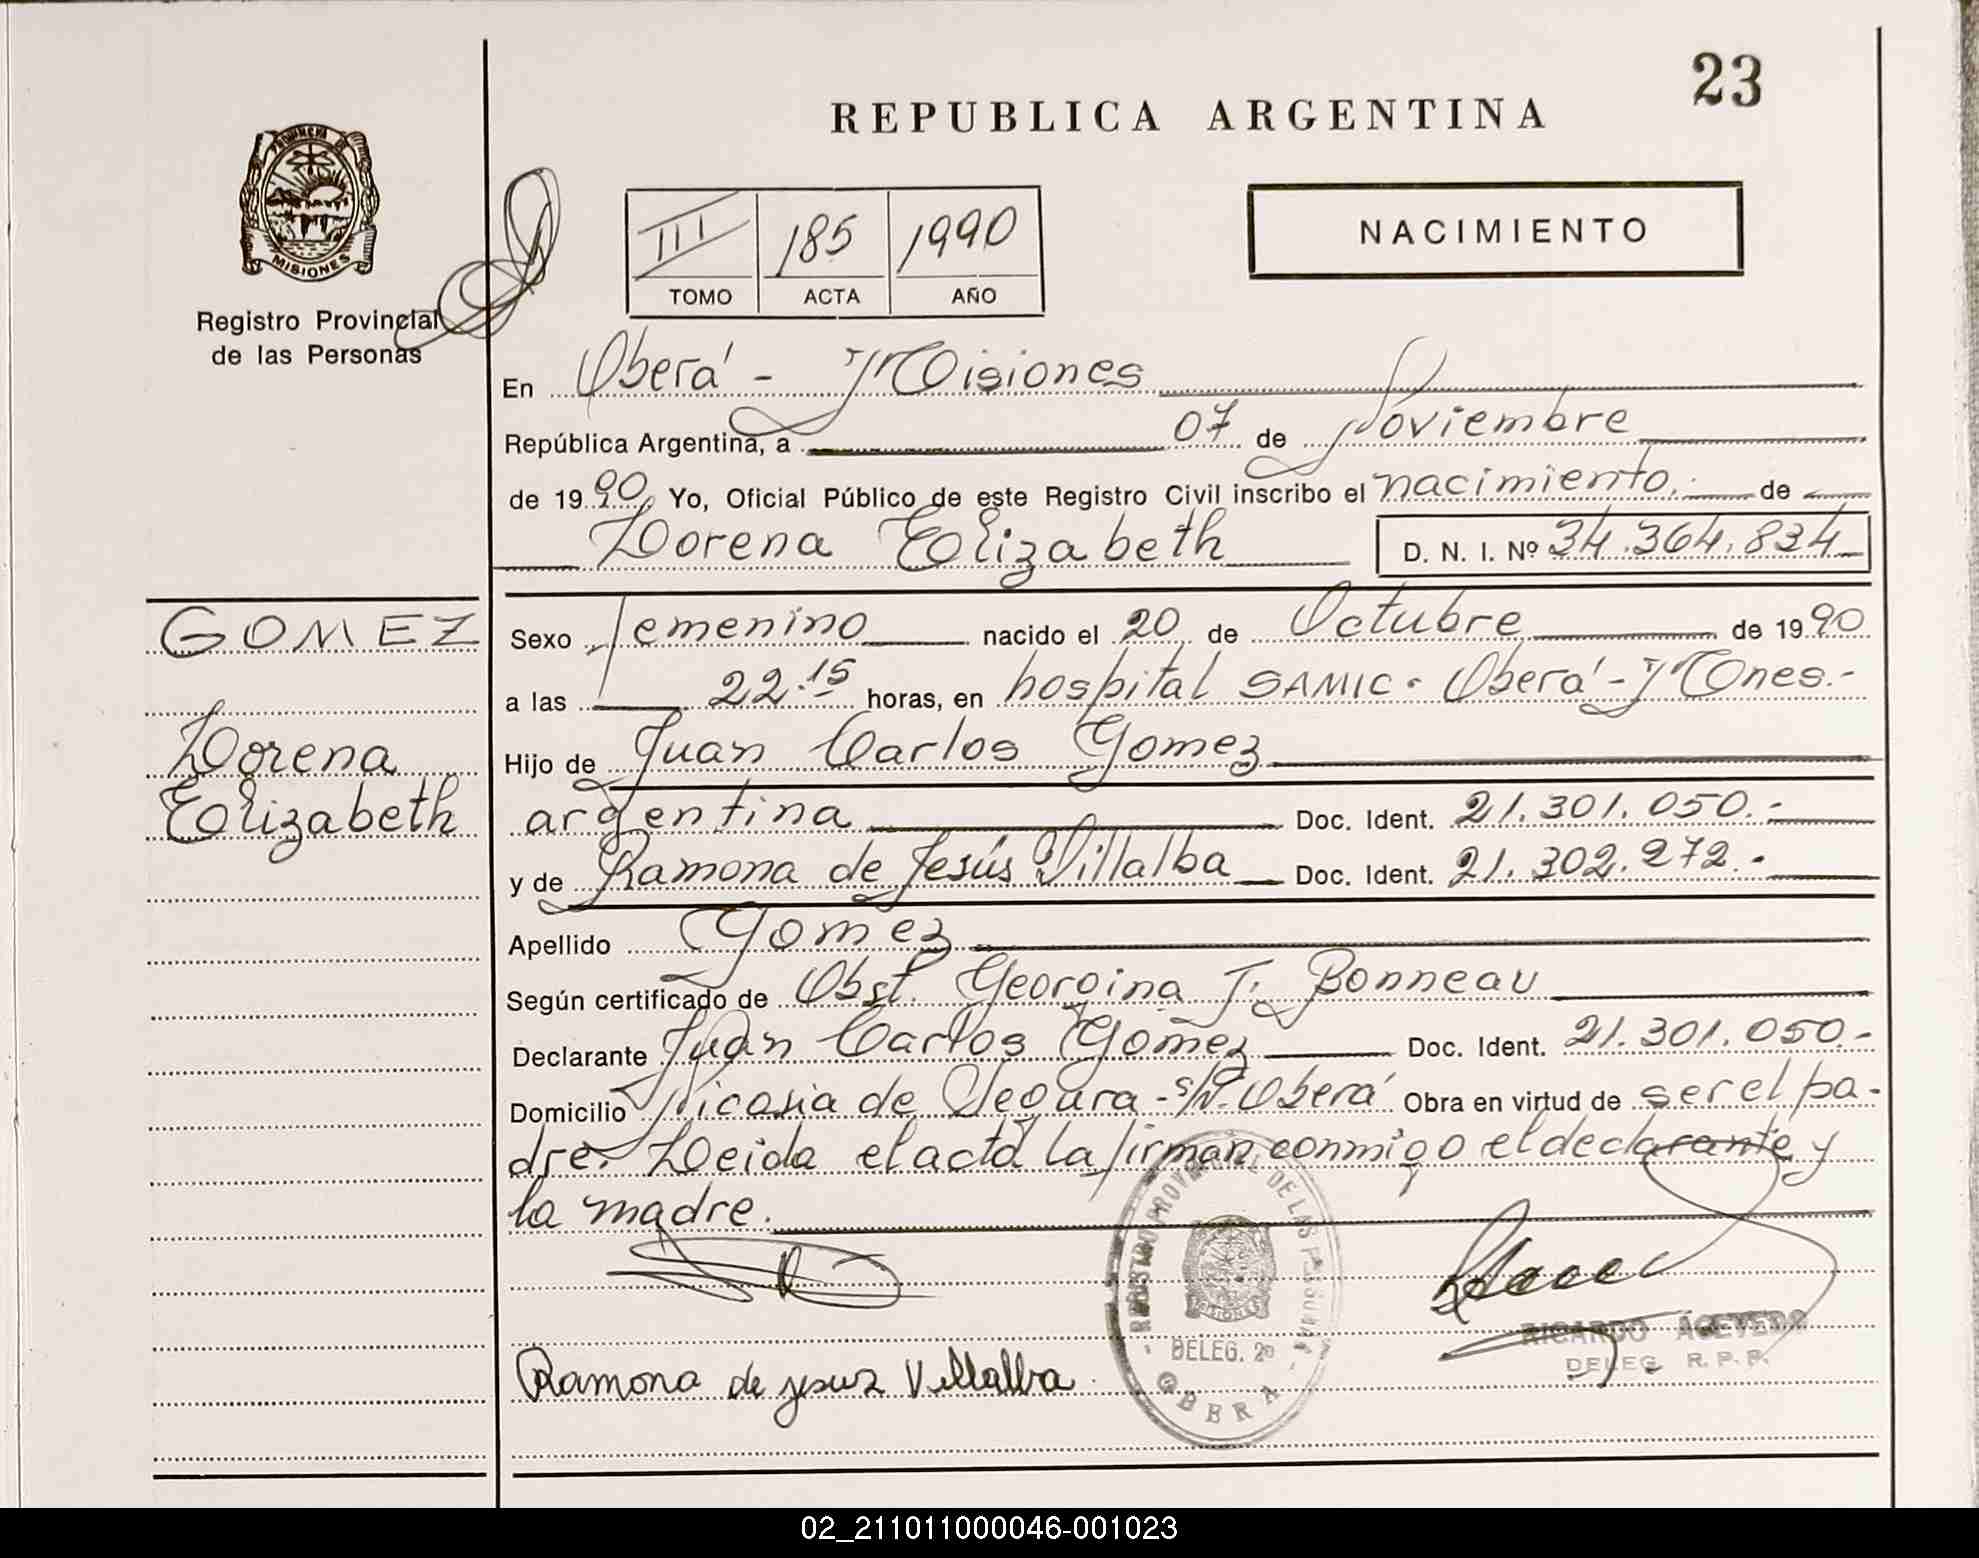 23
REPUBLICA ARGENTINA
PROVINCIA DE
MISIONES
Registro Provincial
de las Personas
III 185 1990
TOMO ACTA AÑO
NACIMIENTO
En Oberá - Misiones
República Argentina, a 07 de Noviembre
de 1990, Yo, Oficial Público de este Registro Civil inscribo el nacimiento. de
Lorena Elizabeth D. N. I. Nº 34.364.834
GOMEZ
Lorena
Elizabeth
Sexo femenino nacido el 20 de Octubre de 1990
a las 22.15 horas, en hospital SAMIC. Oberá - Mnes.-
Hijo de Juan Carlos Gomez
argentina Doc. Ident. 21.301.050.-
y de Ramona de Jesús Villalba Doc. Ident. 21.302.272.-
Apellido Gomez
Según certificado de Obst. Georgina T. Bonneau
Declarante Juan Carlos Gomez Doc. Ident. 21.301.050.-
Domicilio Nicasia de Segura - s/Nº. Oberá Obra en virtud de ser el pa-
dre. Leida el acta la firman conmigo el declarante y
la madre.
REGISTRO PROVINCIAL DE LAS PERSONAS
MISIONES
- DELEG. 2º -
OBERA
RICARDO ACEVEDO
DELEG. R. P. P.
Ramona de jesus Villalba
02_211011000046-001023